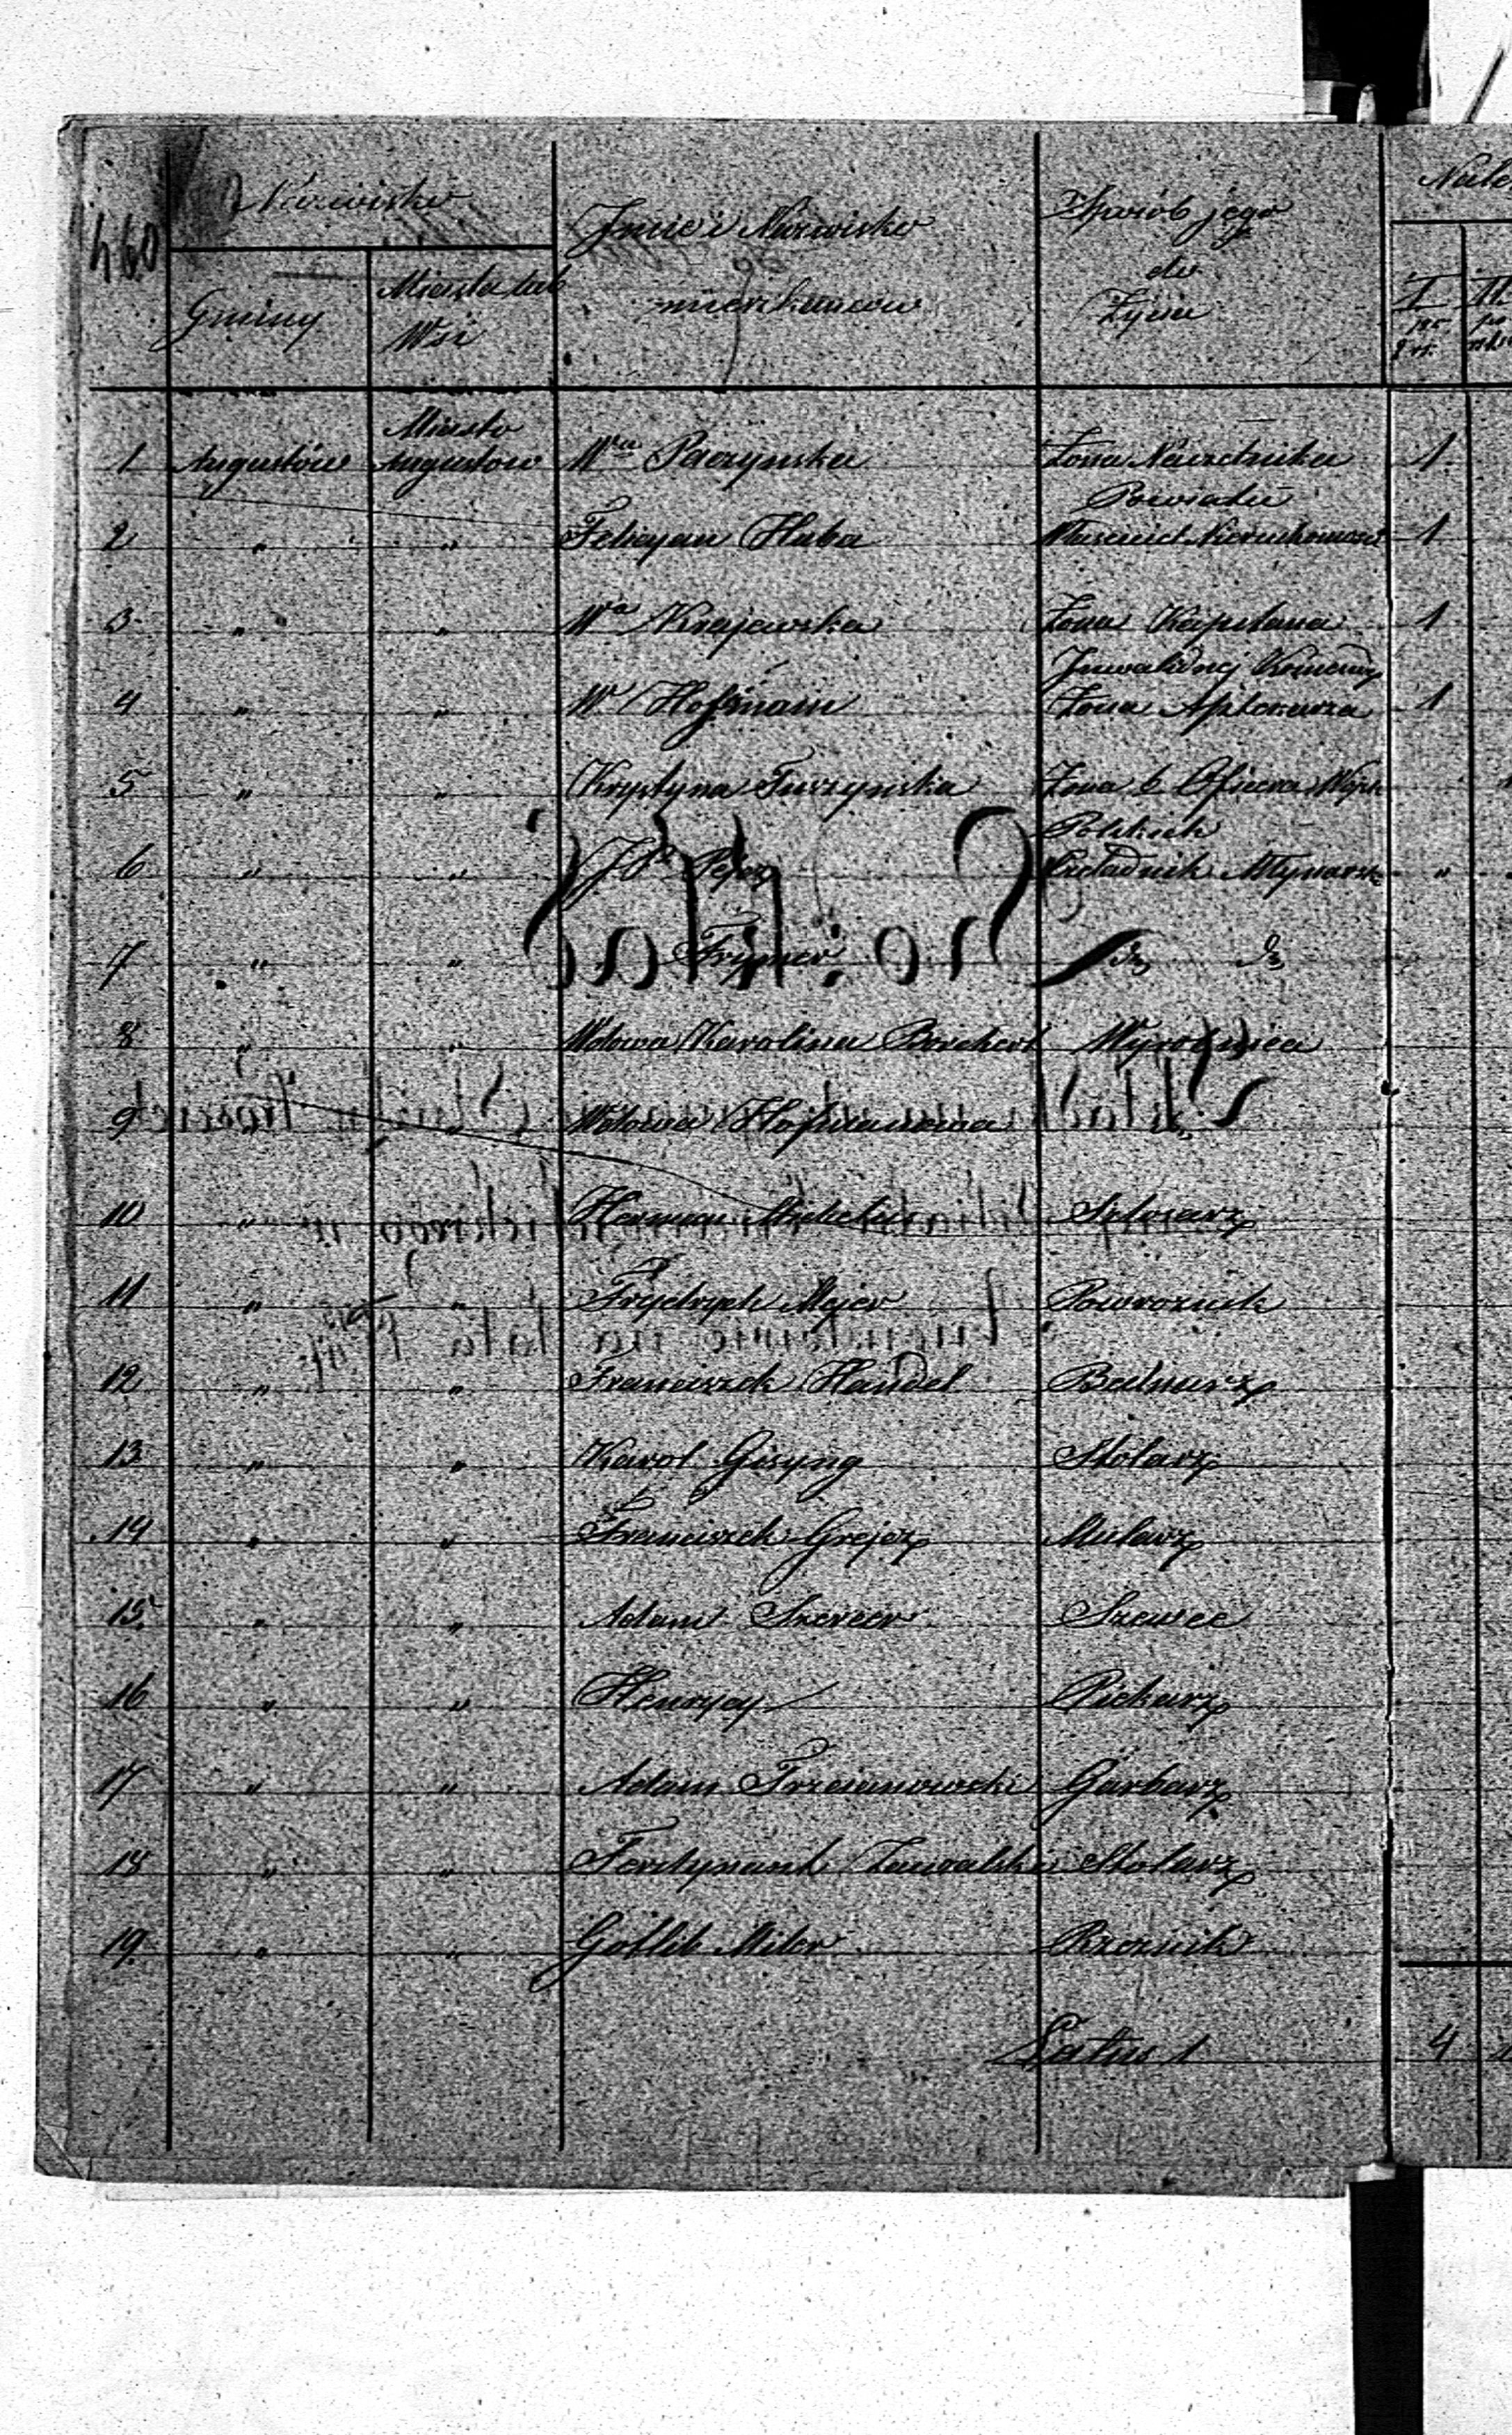 460
Nazwisko
Gminy
Miasta lub
Wsi
Imie i Nazwisko
mieszkańców
Sposób jego
do
Życia
I
Miasto
1 Augustów Augustow Wna Paczynska Żona Naczelnika 1
Powiatu
2 " " Felicyan Haba Własciciel Nieruchomości 1
3 " " Wa Krajewska Żona Kapitana 1
Inwalidnej Komendy
4 " " W Hofman Żona Aptekarza 1
5 " " Krystyna Turzynska Żona b Oficera Wojsk
Polskich
6 " " Czeladnik Młynarski "
7 " " Frymer do do
8 " " Wdowa Karolina Wyrobnica
9 " " Wdowa Hofmanowa
10 " " Herman Szlosarz
11 " " Frydrych Mejer Powroznik
12 " " Franciszek Handel Bednarz
13 " " Karol Gisyng Stolarz
14 " " Franciszek Grejcz Mularz
15 " " Adam Szercer Szewec
16 " " Henrycy Piekarz
17 " " Adam Trzcianowski Garbarz
18 " " Ferdynand Zawalski Stolarz
19 " " Gotlib Miler Rzeznik
Latus 1 4